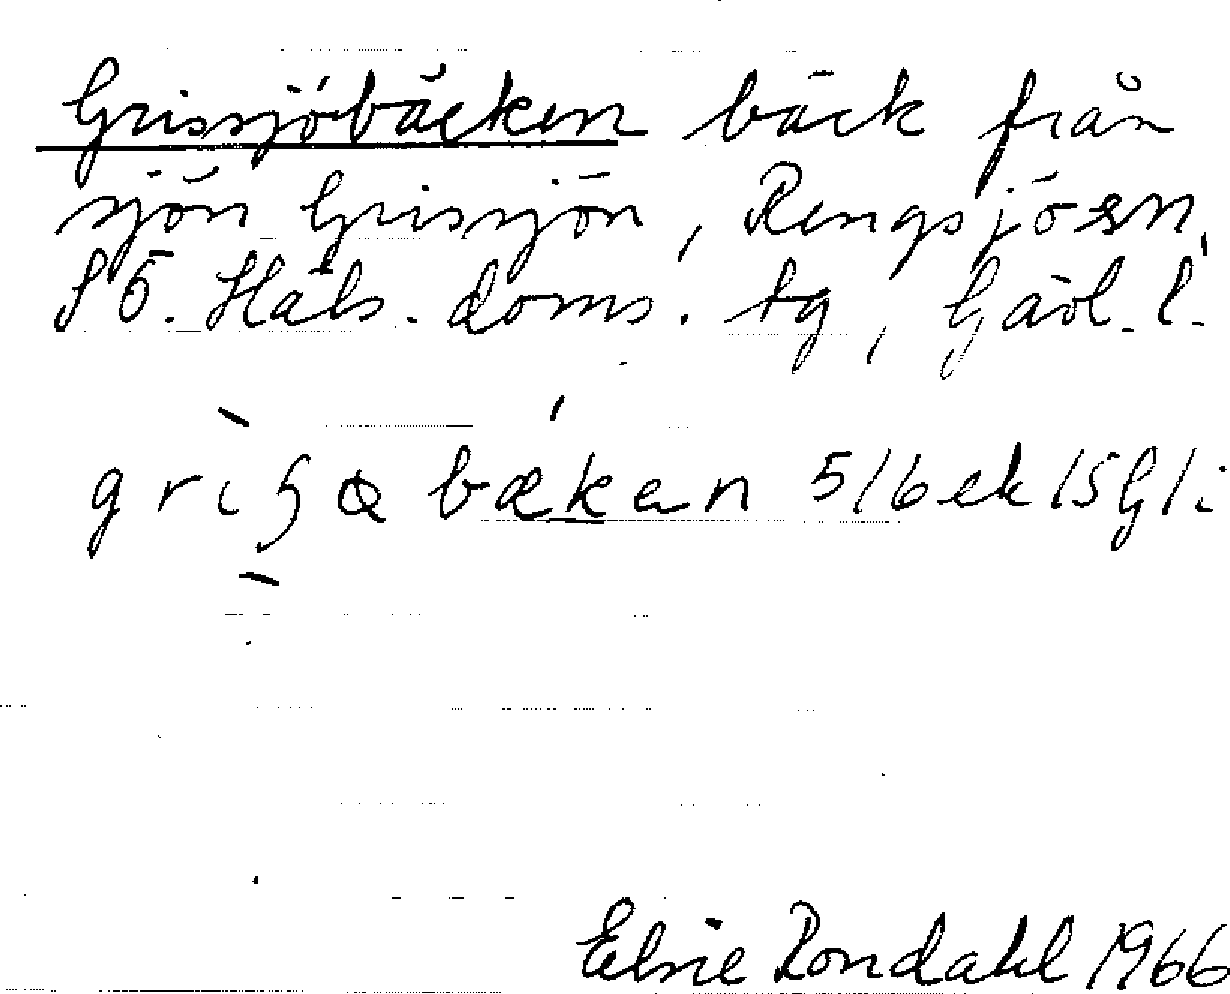 Grissjöbäcken bäck från
sjön Grissjön, Rengsjö sn,
SÖ. Häls. doms. tg, Gävl. l.
5/6 ek 15 G/i
Elsie Rondahl 1966